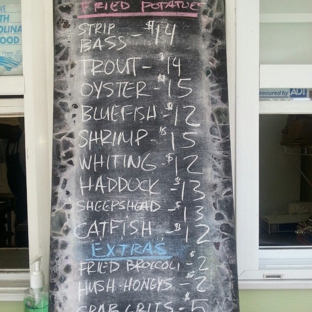 FRIED POTATOES
STRIP BASS - $14
TROUT - $14
OYSTER - $15
BLUEFISH - $12
SHRIMP - $15
WHITING - $12
HADDOCK - $13
SHEEPSHEAD - $13
CATFISH - $12
EXTRAS
FRIED BROCCOLI - $2
HUSH-HONEYS - $2
CRAB GRITS - $5
TH
OUND
FOOD
secured by ADT